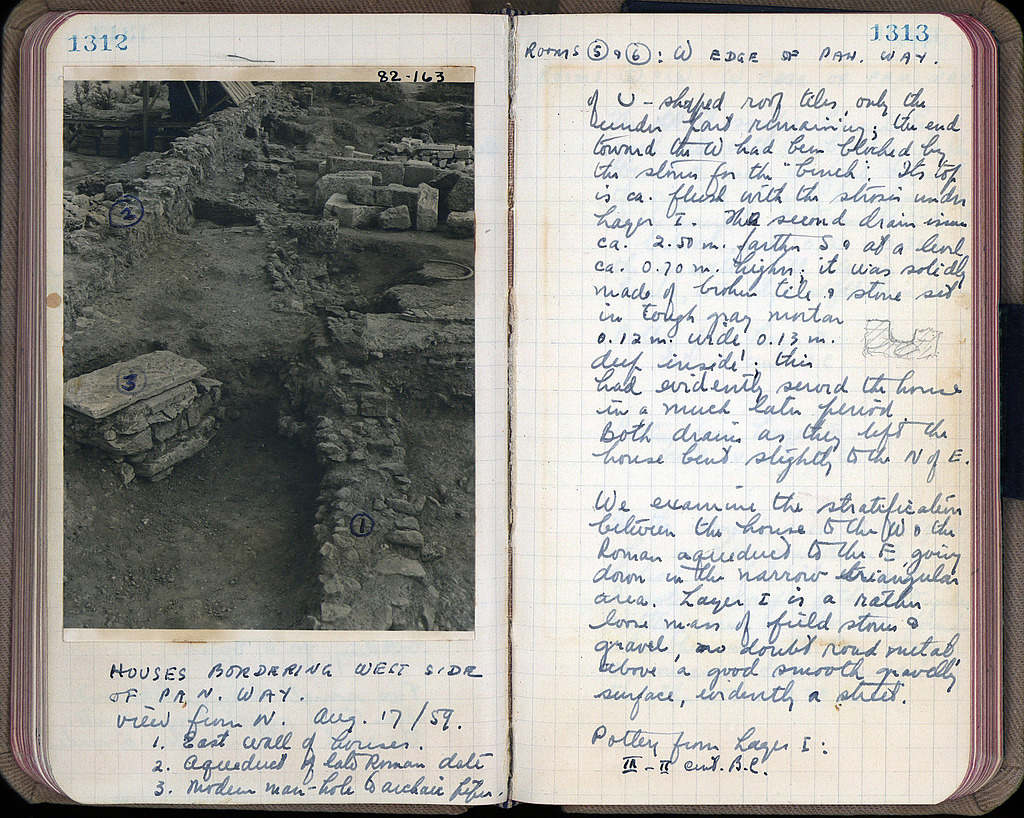 1312
82-163
2
3
1
HOUSES BORDERING WEST SIDE
OF PAN. WAY.
view from N. Aug. 17/59.
1. East wall of houses.
2. Aqueduct of late Roman date
3. Modern man-hole to archaic pipe
1313
ROOMS 5 & 6 : W EDGE OF PAN. WAY.
of U-shaped roof tiles, only the
under part remaining; the end
toward the W had been blocked by
the stones for the "bench". Its top
is ca. flush with the strosis under
Layer I. The second drain issues
ca. 2.50 m. farther S & at a level
ca. 0.70 m. higher; it was solidly
made of broken tile & stone set
in tough gray mortar
0.12 m. wide 0.13 m.
deep inside; this
had evidently served the house
in a much later period.
Both drains as they left the
house bent slightly to the N of E.
We examine the stratification
between the house to the W & the
Roman aqueduct to the E, going
down in the narrow triangular
area. Layer I is a rather
loose mass of field stones &
gravel, no doubt road metal,
above a good smooth gravelly
surface, evidently a street.
Pottery from Layer I:
III-II cent. B.C.